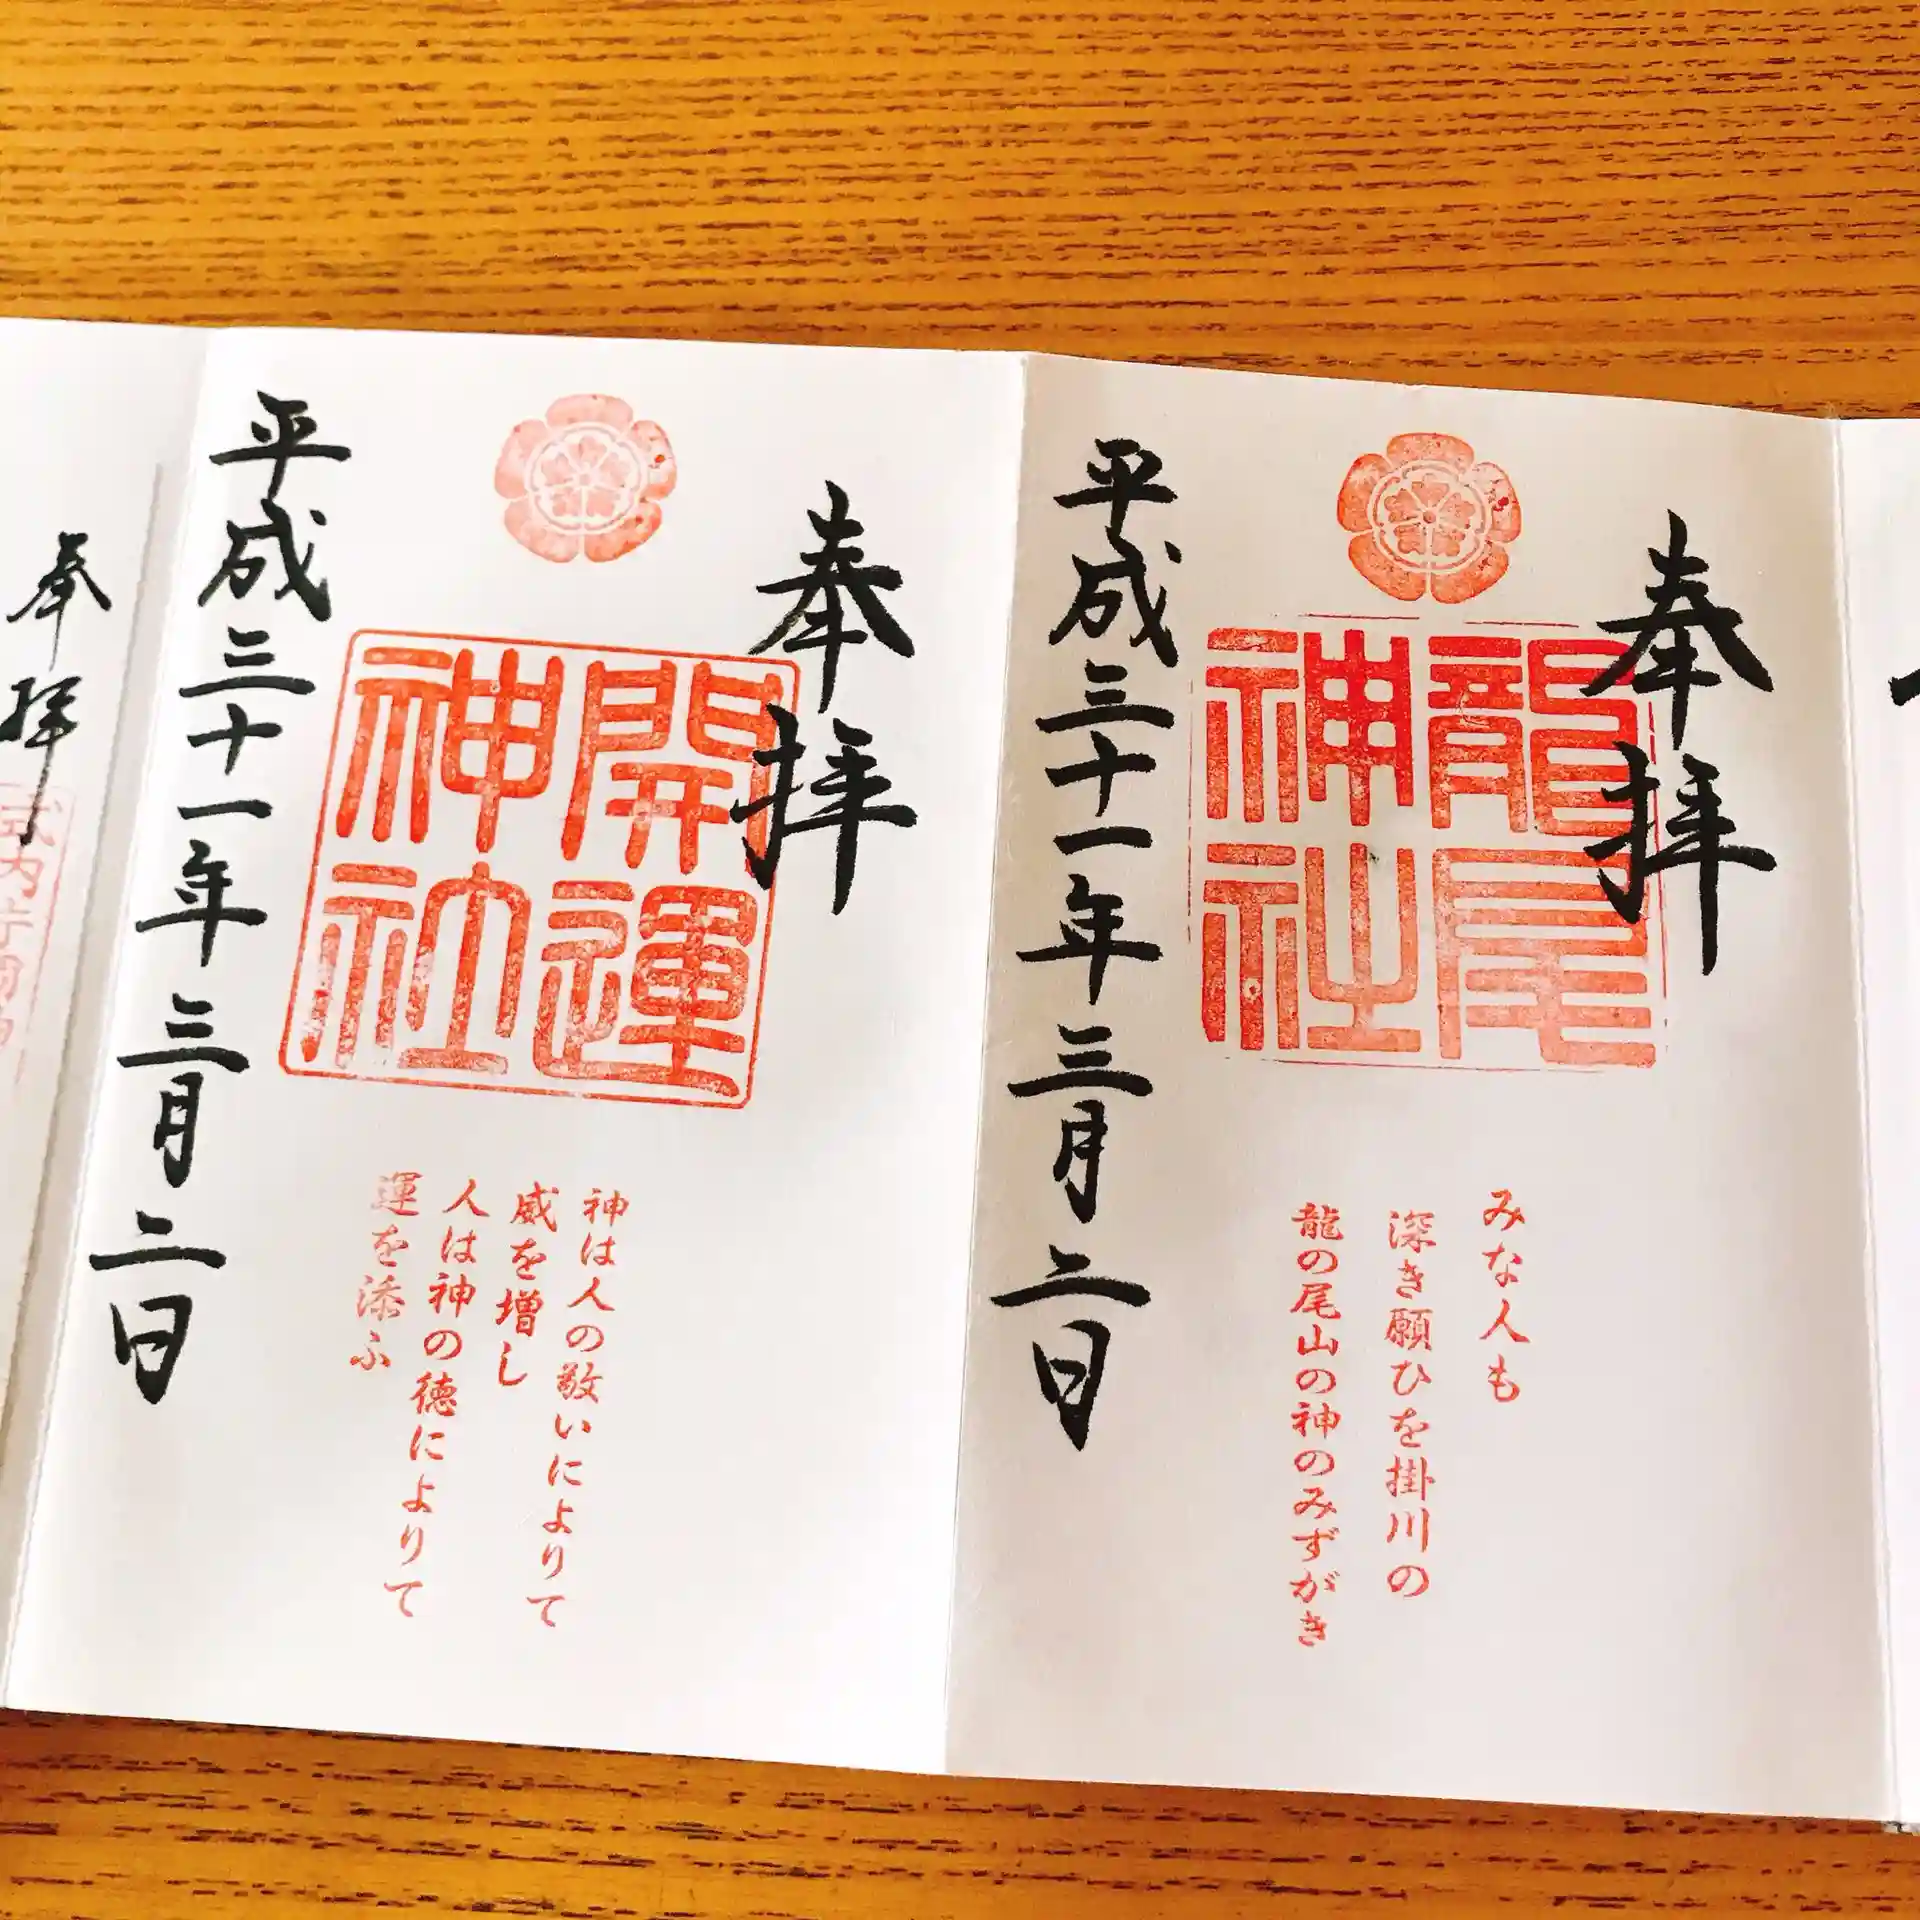 奉拝
龍尾神社
みな人も
深き願ひを掛川の
龍の尾山の神のみずがき
平成三十一年三月二日
奉拝
開運神社
神は人の敬いによりて
威を増し
人は神の徳によりて
運を添ふ
平成三十一年三月二日
奉拝
式内